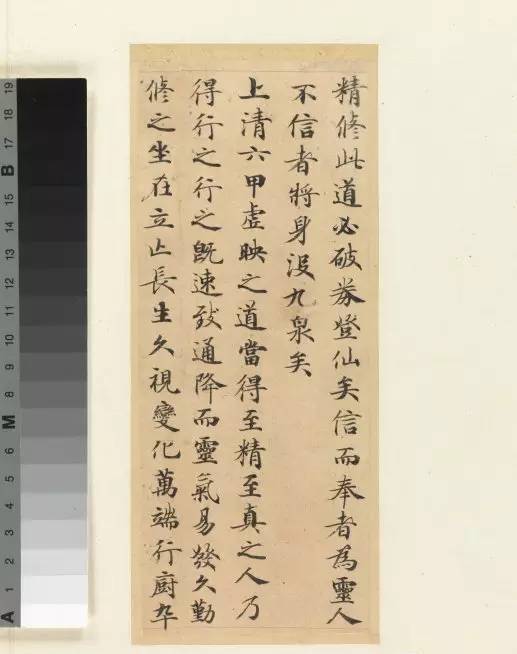 精脩此道必破券登仙矣信而奉者為靈人
不信者將身没九泉矣
上清六甲虛映之道當得至精至真之人乃
得行之行之既速致通降而靈氣易發久勤
脩之坐在立亡長生久視變化萬端行廚卒
A 1 2 3 4 5 6 M 8 9 10 11 12 13 14 15 B 17 18 19